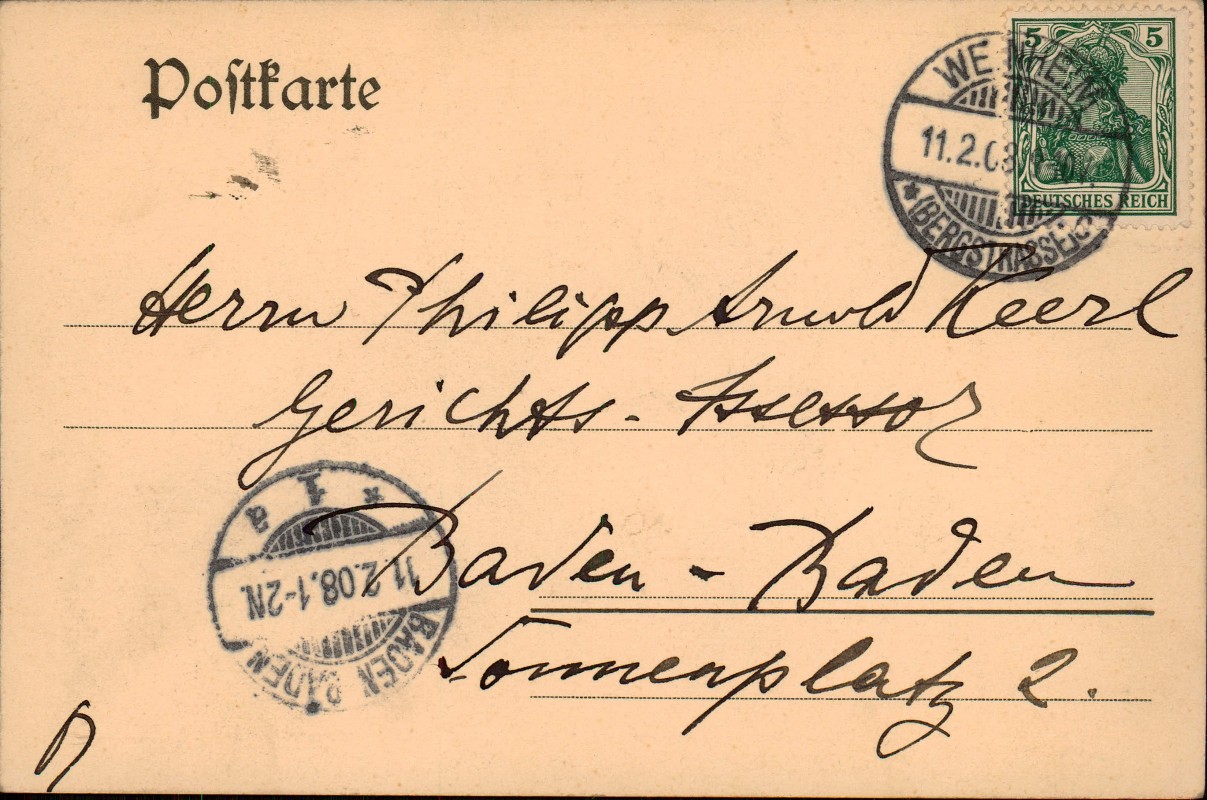 Postkarte
5 5
DEUTSCHES REICH
WEINHEIM
11.2.08
(BERGSTRASSE)
Herrn Philipp Arnold Keerl
Gerichts-Assessor
Baden-Baden
Sonnenplatz 2.
* 1 a
11.2.08.1-2N.
BADEN BADEN